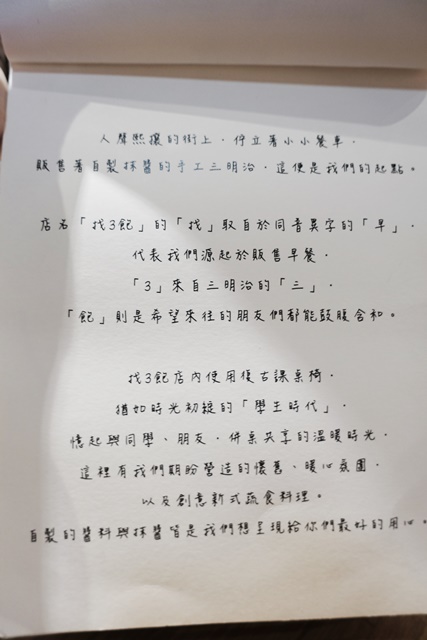 人聲熙攘的街上．佇立著小小餐車．
販售著自製抹醬的手工三明治．這便是我們的起點。
店名「找3飽」的「找」取自於同音異字的「早」．
代表我們源起於販售早餐．
「3」來自三明治的「三」．
「飽」則是希望來往的朋友們都能鼓腹含和。
找3飽店內使用復古課桌椅．
猶如時光初綻的「學生時代」．
憶起與同學、朋友．併桌共享的溫暖時光．
這裡有我們期盼營造的懷舊、暖心氛圍．
以及創意新式蔬食料理。
自製的醬料與抹醬皆是我們想呈現給你們最好的用心。